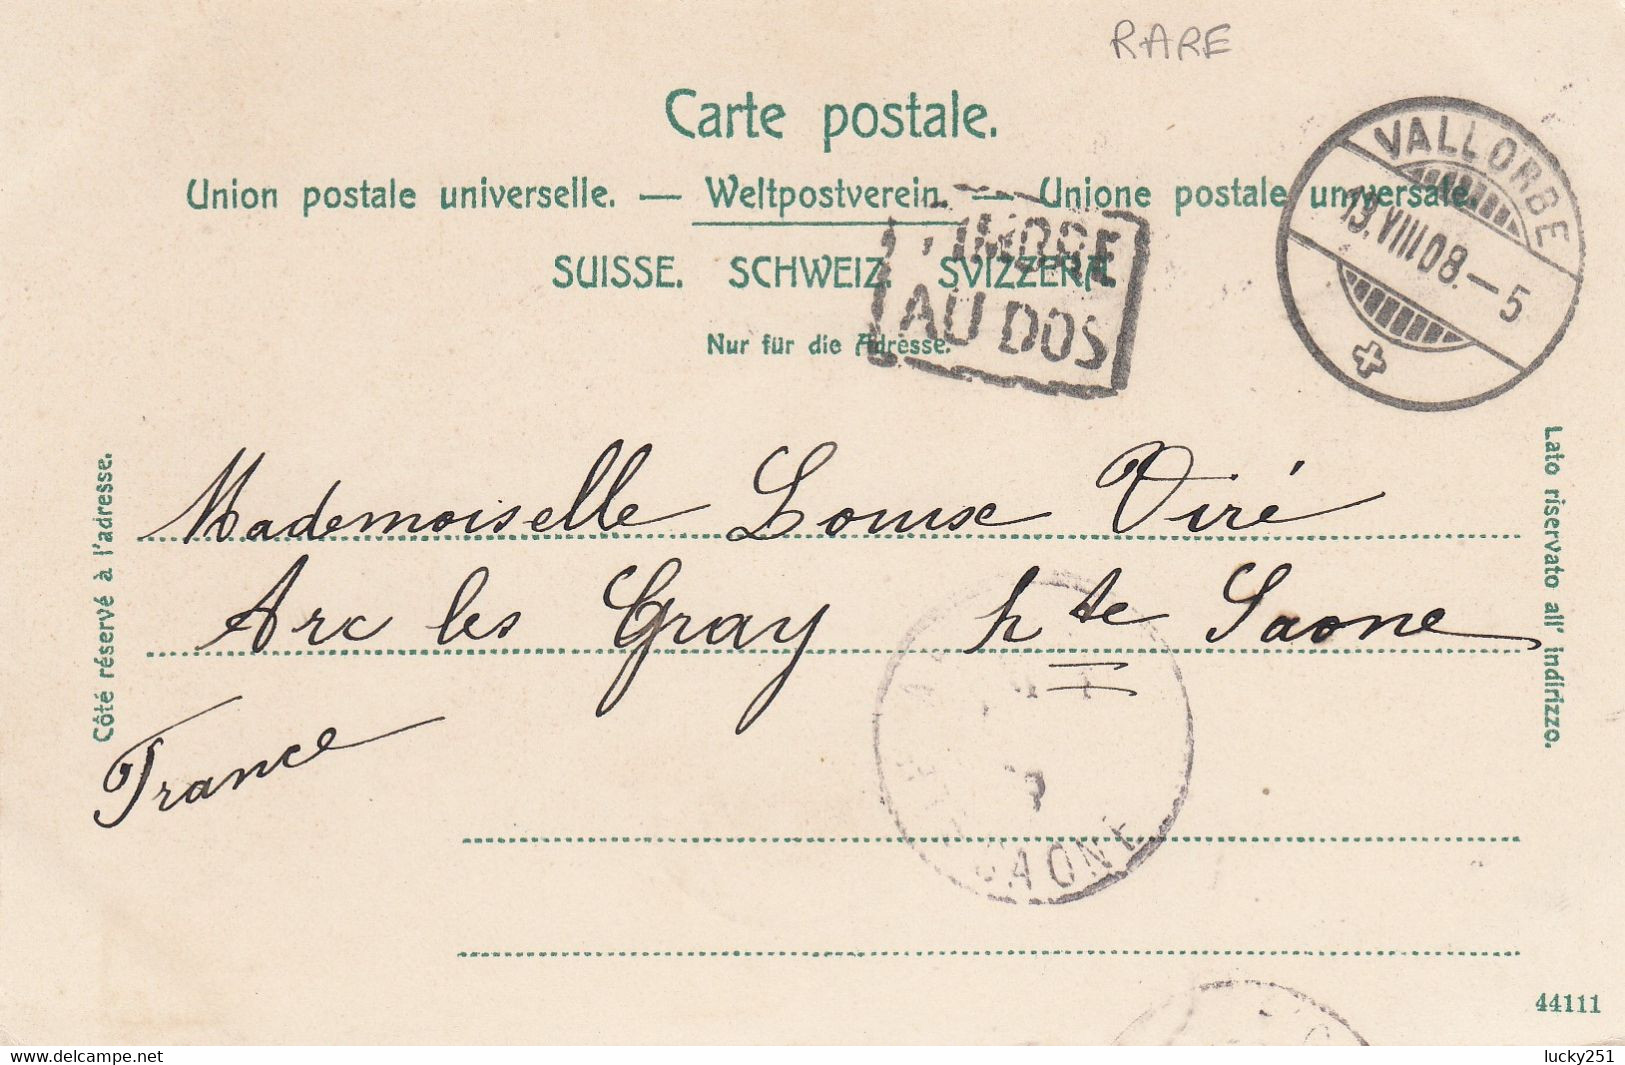 RARE
Carte postale.
Union postale universelle. — Weltpostverein. — Unione postale universale.
SUISSE. SCHWEIZ. SVIZZERA.
Nur für die Adresse.
TIMBRE
AU DOS
VALLORBE
13.VIII 08.–5
Côté réservé à l'adresse.
Lato riservato all' indirizzo.
Mademoiselle Louise Viré
Arc les Gray hte Saone
France
SAONE
44111
delcampe.net
lucky251